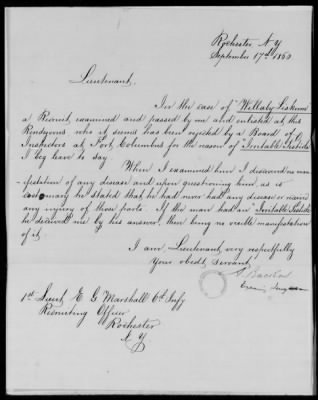 Rochester, N.Y
September 17th 1860
Lieutenant,
In the case of "Willaby Liskum"
a Recruit, examined and passed by me and enlisted at this
Rendezvous who it seems has been rejected by a Board of
Inspectors at Fort Columbus for the reason of "Irritable Testicle"
I beg leave to say.
When I examined him I discovered no man-
ifestation of any disease and upon questioning him, as is
customary he stated that he had never had any disease or received
any injury of those parts. If the man had an "Irritable Testicle"
he deceived me by his answer, there being no visible manifestation
of it.
I am, Lieutenant, very respectfully
Your obedt, servant,
Backus
1st Lieut E G Marshall 6th Infy
Recruiting Officer
Rochester
N.Y